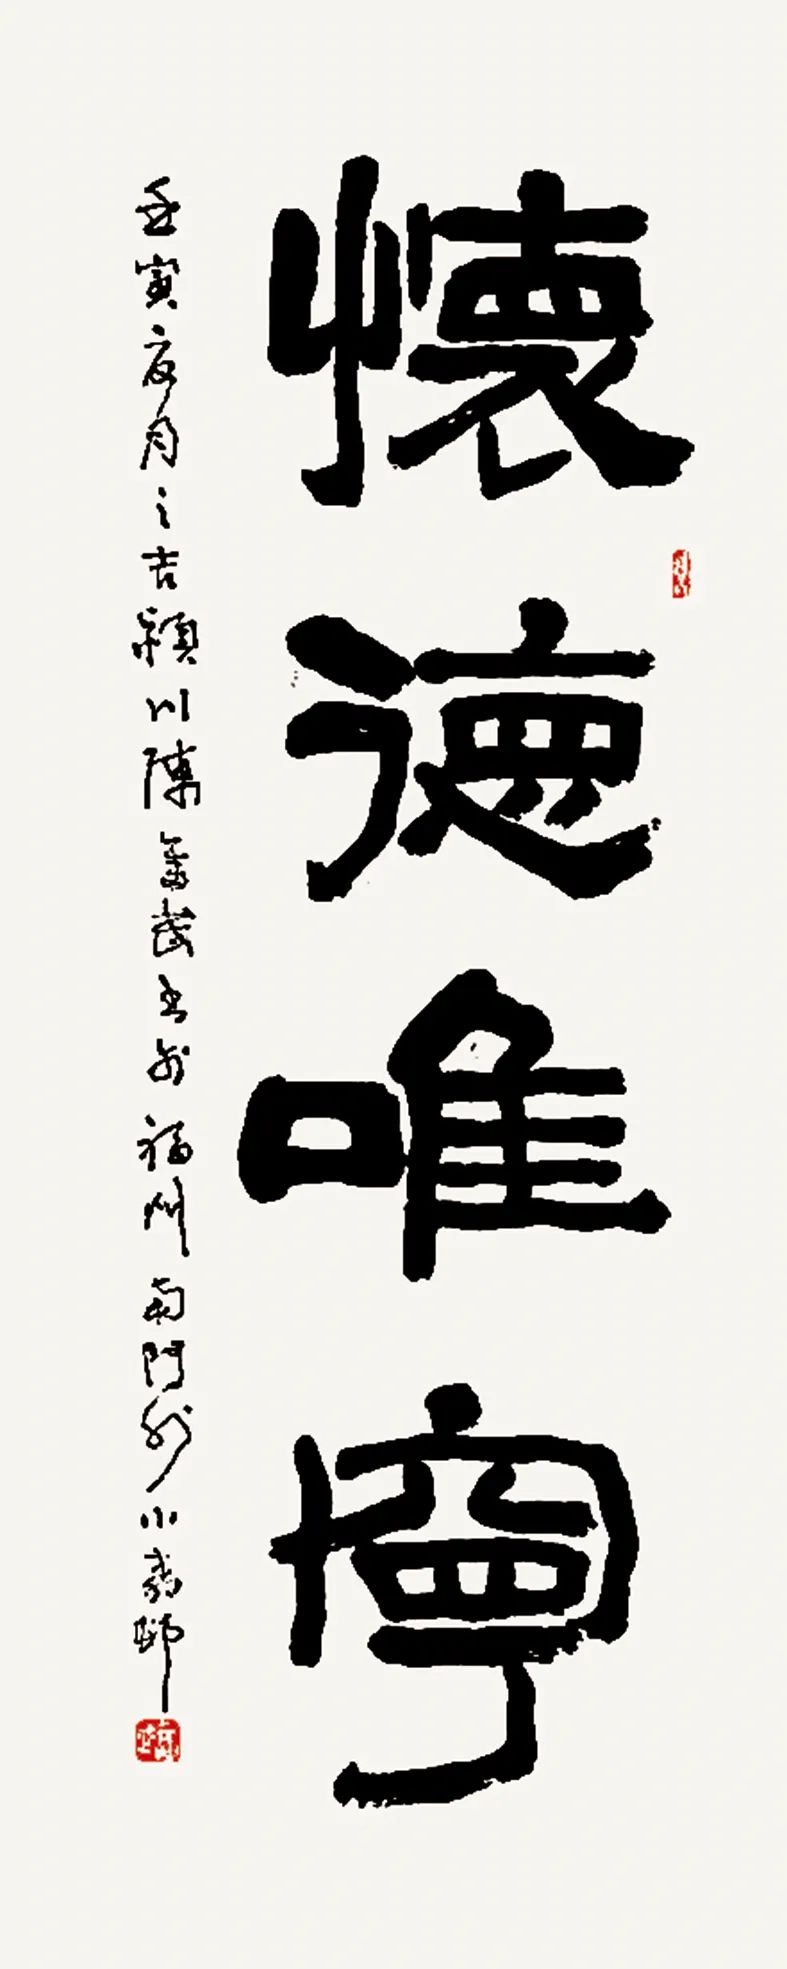 懷德唯寧
壬寅夏月之吉穎川陳金茂書於福州南門外小